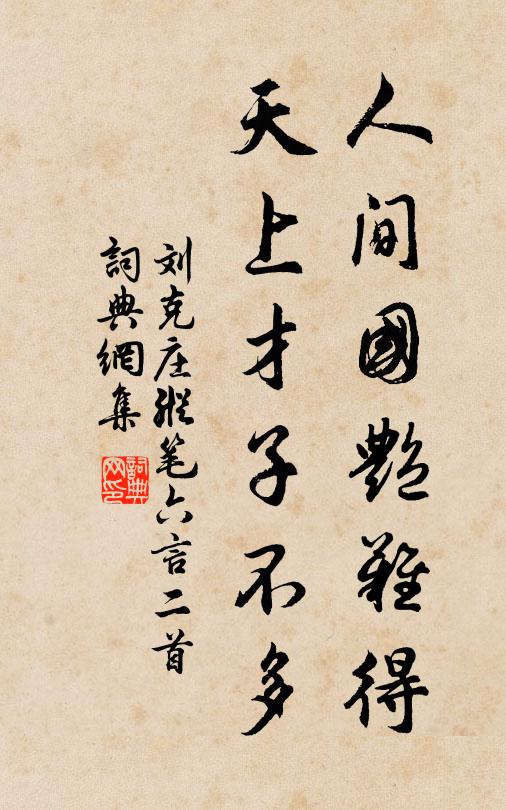 人间國艷難得
天上才子不多
刘克庄縱笔六言二首
詞典網集
詞典
网印